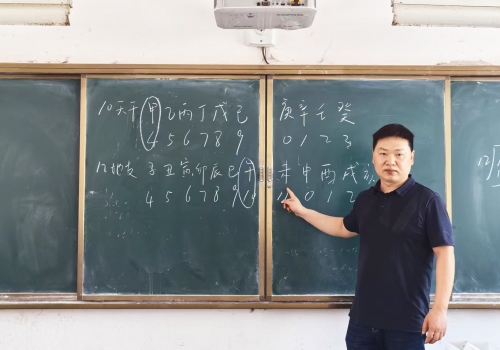 10天干 甲乙丙丁戊己 庚辛壬癸
4 5 6 7 8 9 0 1 2 3
12地支 子丑寅卯辰巳午 未申酉戌
4 5 6 7 8 9 0 1 2
12